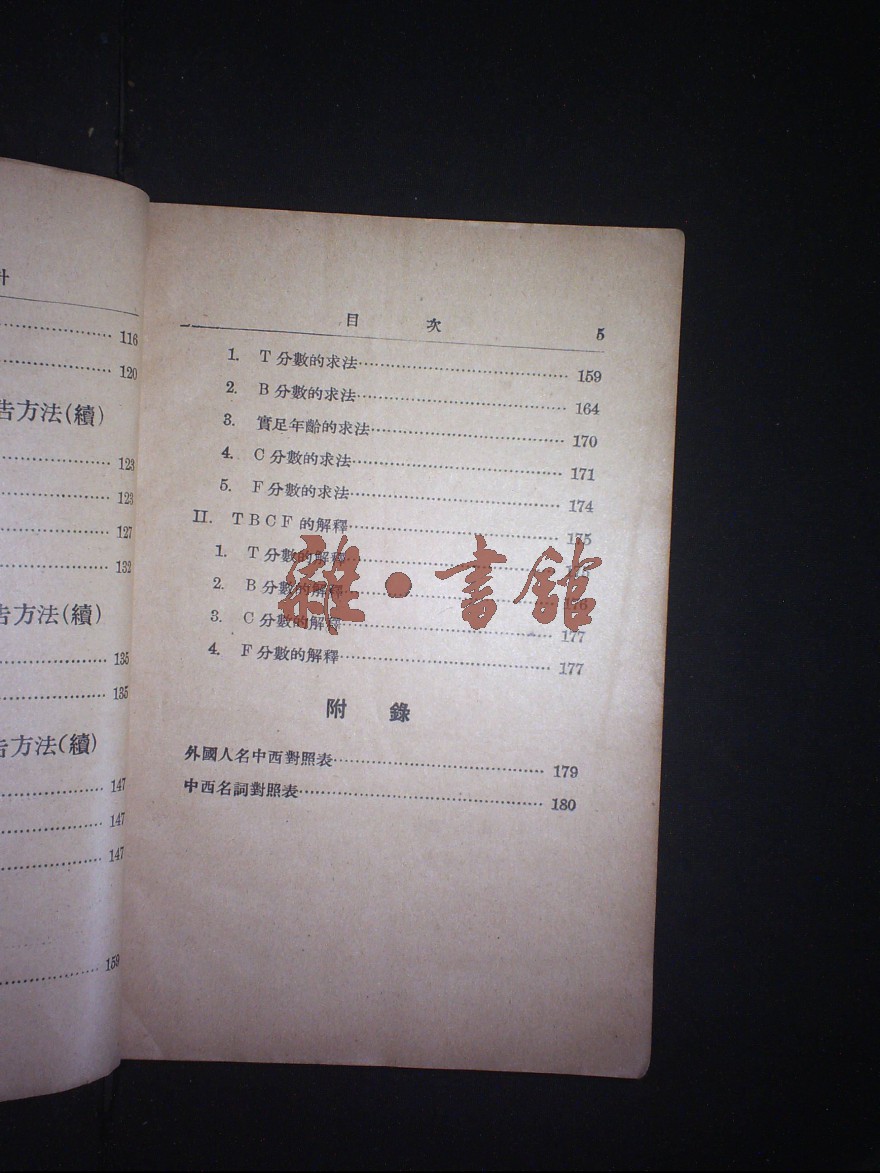 计
116
120
告方法(續)
123
123
127
132
告方法(續)
135
135
告方法(續)
147
147
147
159
目 次 5
1. T 分數的求法 159
2. B 分數的求法 164
3. 實足年齡的求法 170
4. C 分數的求法 171
5. F 分數的求法 174
II. T B C F 的解釋 175
1. T 分數的解釋
2. B 分數的解釋 176
3. C 分數的解釋 177
4. F 分數的解釋 177
雜·書館
附 錄
外國人名中西對照表 179
中西名詞對照表 180